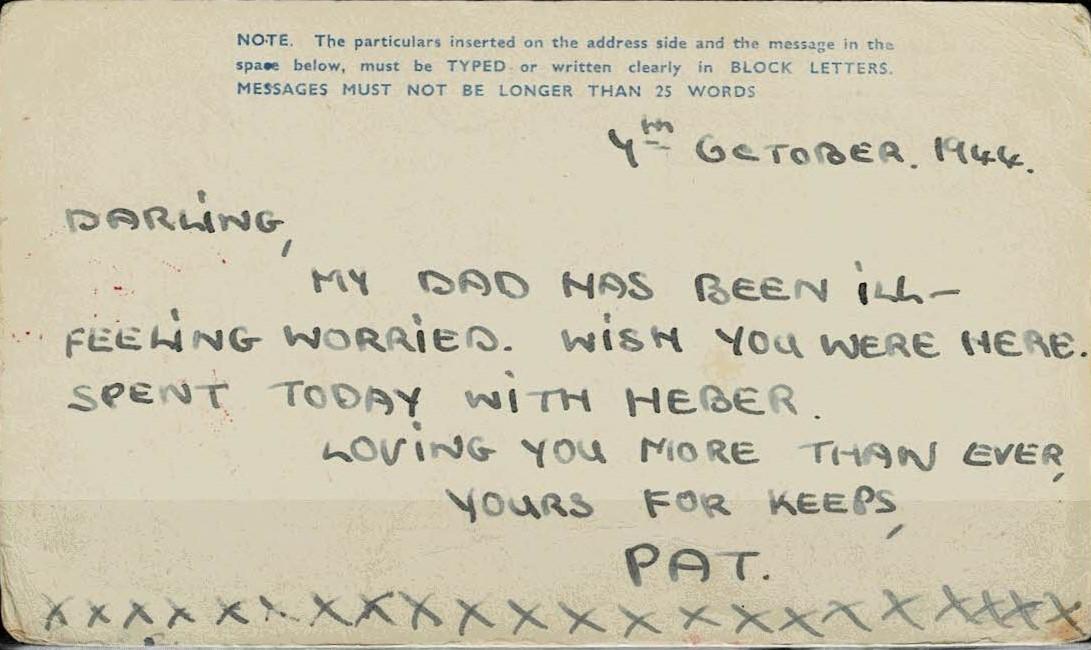 NOTE. The particulars inserted on the address side and the message in the
space below, must be TYPED or written clearly in BLOCK LETTERS.
MESSAGES MUST NOT BE LONGER THAN 25 WORDS
4TH OCTOBER. 1944.
DARLiNG,
MY DAD HAS BEEN iLL-
FEELiNG WORRiED. WiSH YOU WERE HERE.
SPENT TODAY WiTH HEBER.
LOViNG YOU MORE THAN EVER,
YOURS FOR KEEPS,
PAT.
X X X X X X X X X X X X X X X X X X X X X X